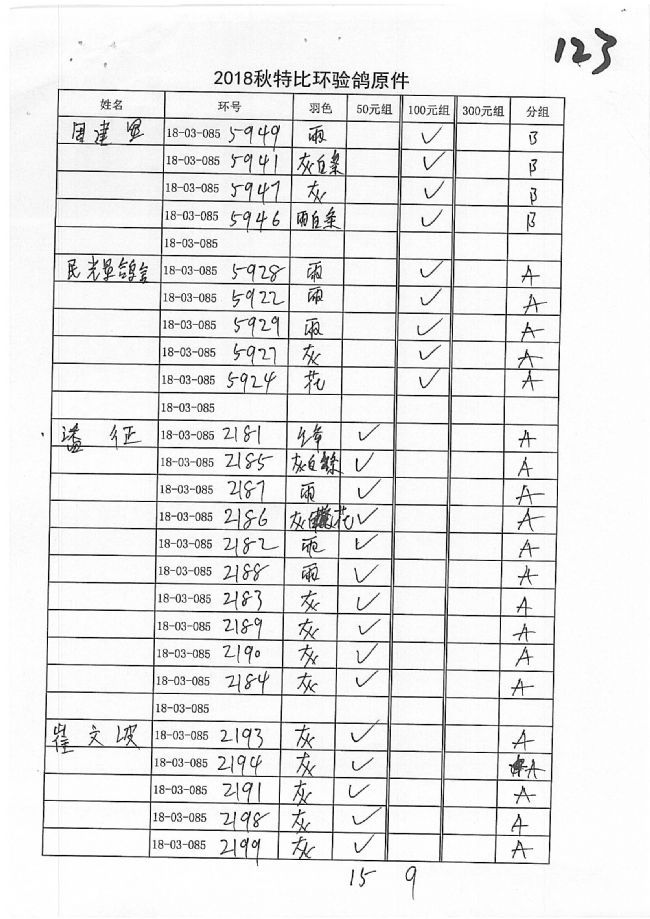 123
2018秋特比环验鸽原件
姓名 环号 羽色 50元组 100元组 300元组 分组
周建 18-03-085 5949 雨 ✓ B
18-03-085 5941 灰白条 ✓ B
18-03-085 5947 灰 ✓ B
18-03-085 5946 雨白条 ✓ B
18-03-085
民光 鸽舍 18-03-085 5928 雨 ✓ A
18-03-085 5922 雨 ✓ A
18-03-085 5929 雨 ✓ A
18-03-085 5927 灰 ✓ A
18-03-085 5924 花 ✓ A
18-03-085
潘征 18-03-085 2181 绛 ✓ A
18-03-085 2185 灰白条 ✓ A
18-03-085 2187 雨 ✓ A
18-03-085 2186 灰 花 ✓ A
18-03-085 2182 雨 ✓ A
18-03-085 2188 雨 ✓ A
18-03-085 2183 灰 ✓ A
18-03-085 2189 灰 ✓ A
18-03-085 2190 灰 ✓ A
18-03-085 2184 灰 ✓ A
18-03-085
崔文波 18-03-085 2193 灰 ✓ A
18-03-085 2194 灰 ✓ A
18-03-085 2191 灰 ✓ A
18-03-085 2198 灰 ✓ A
18-03-085 2199 灰 ✓ A
15 9